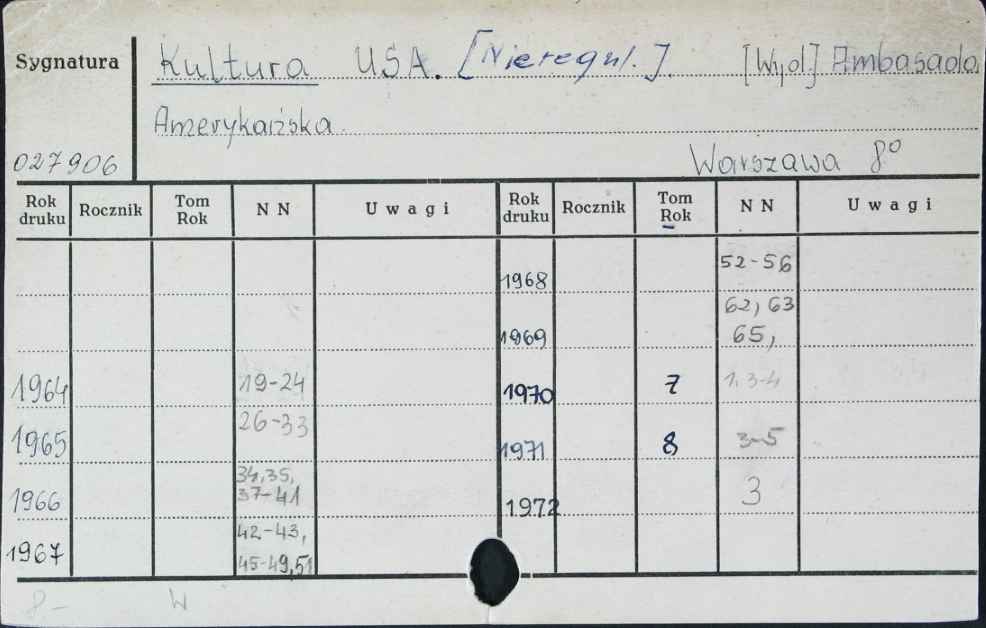 Sygnatura
Kultura USA. [Nieregul.]. [Wyd.] Ambasada
Amerykańska.
027906
Warszawa 8°
Rok druku Rocznik Tom Rok NN Uwagi Rok druku Rocznik Tom Rok NN Uwagi
1968 52-56
1969 62, 63 65,
1964 19-24 1970 7 1, 3-4
1965 26-33 1971 8 3-5
1966 34,35, 37-41 1972 3
1967 42-43, 45-49,51
8.- W